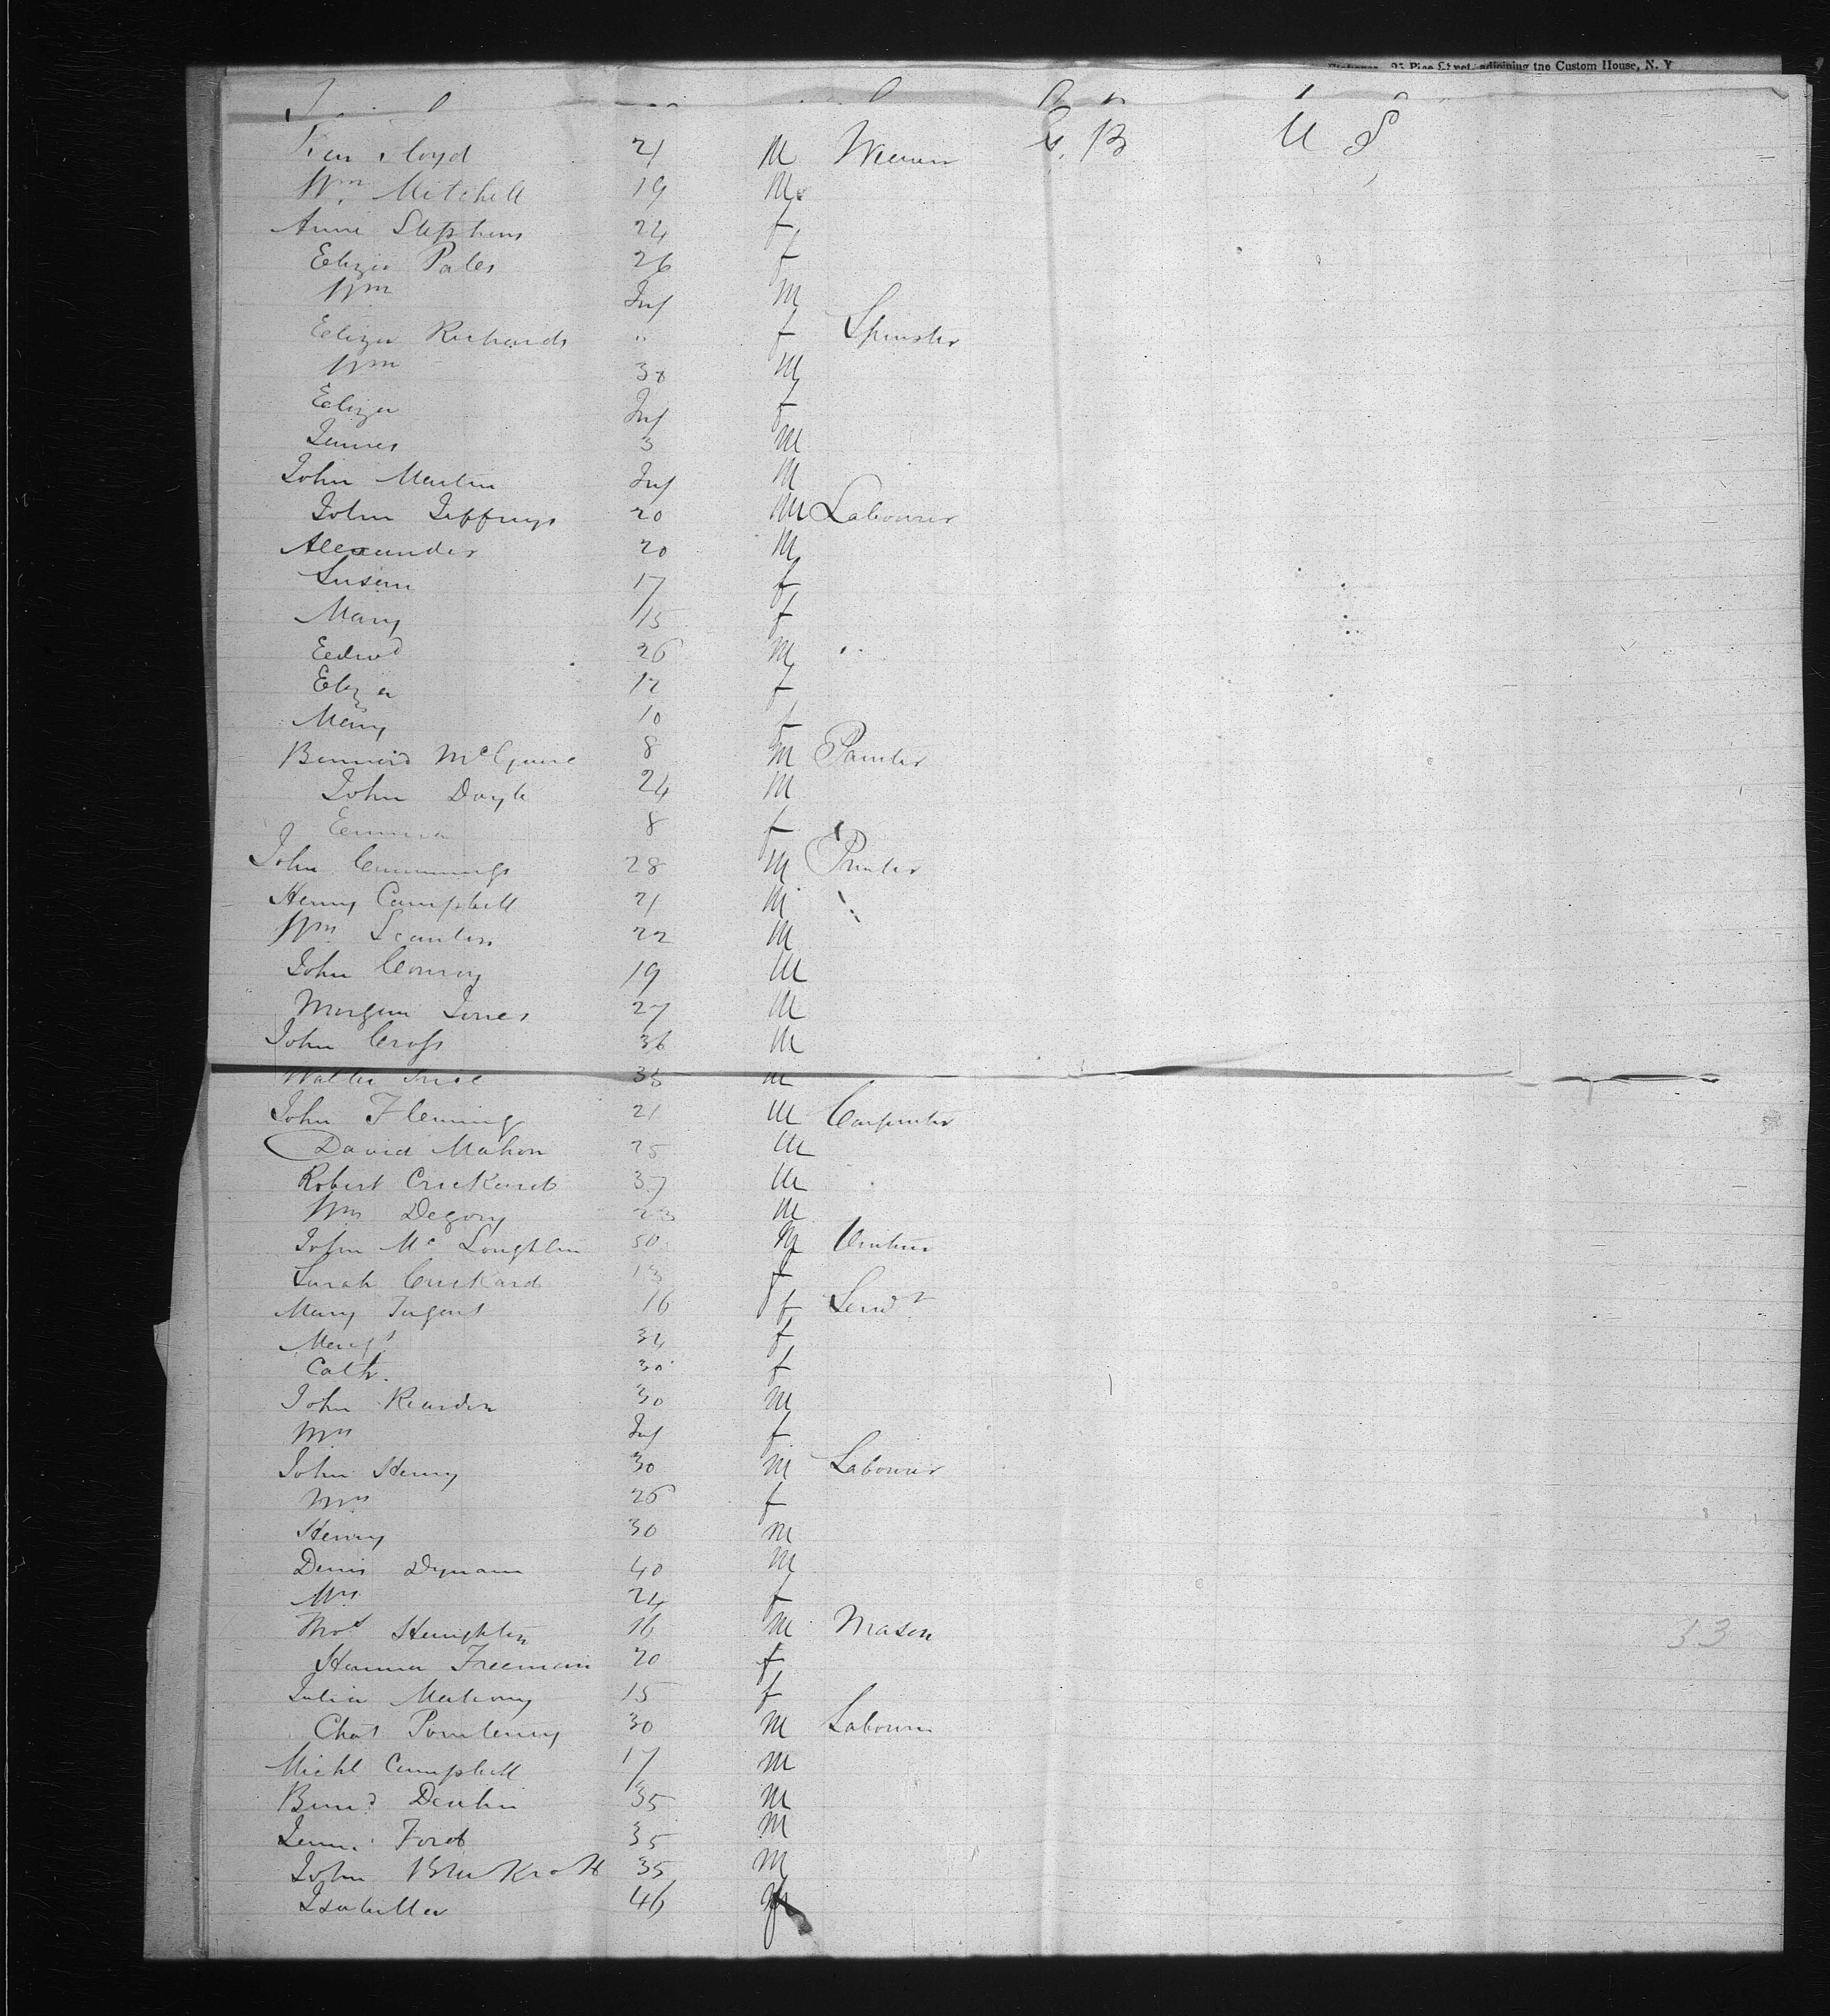 25 Pine Street, adjoining the Custom House, N. Y
Lloyd 21 M G. B U S
Wm Mitchell 19 M
Anne Stephens 24 f
Eliza Pales 26 f
Wm Inf M
Eliza Richards " f Spinster
Wm 30 M
Eliza Inf f
James 3 M
John Martin Inf M
John Jeffreys 20 M Labourer
Alexander 20 M
Susan 17 f
Mary 15 f
Edwd 26 M "
Eliza 12 f
Mary 10 f
Bernard McGuire 8 M Painter
John Doyle 24 M
Emma 8 f
John Cummings 28 M Printer
Henry Campbell 21 M "
Wm Scanlen 22 M
John Conroy 19 M
Morgan Jones 27 M
John Cross 36 M
Walter 35 M
John Fleming 21 M Carpenter
David Mahon 25 M
Robert Crickard 37 M
Wm Degory 23 M
John Mc Loughlin 50 M
Sarah Crickard 13 f
Mary 16 f Servt
Margt 34 f
Cath. 30 f
John Reardon 30 M
Mrs Inf f
John Henry 30 M Labourer
Mrs 26 f
Henry 30 M
Denis 40 M
Mrs 24 f
Thos Haughton 16 M Mason
Hanna Freeman 20 f
Julia Mahony 15 f
Chas 30 M Labourer
Michl Campbell 17 M
Bernd Devlin 35 M
Ford 35 M
John 35 M
Isabella 46 f
33